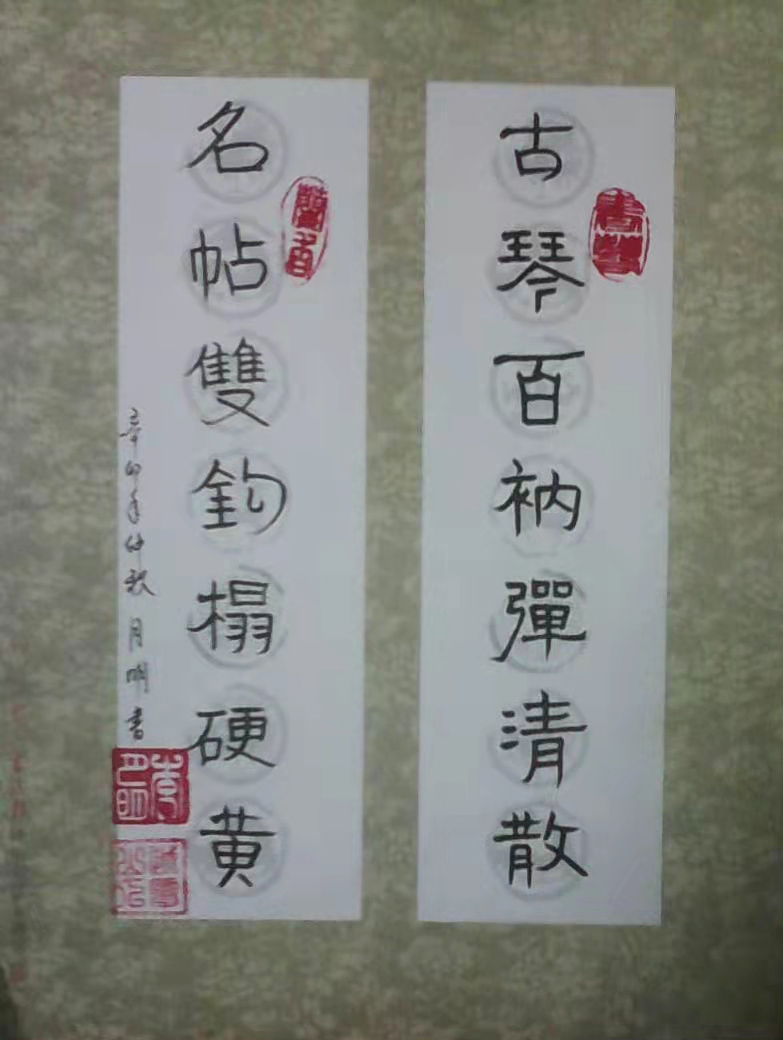 古琴百衲彈清散
名帖雙鈎榻硬黄
辛卯年仲秋月明書